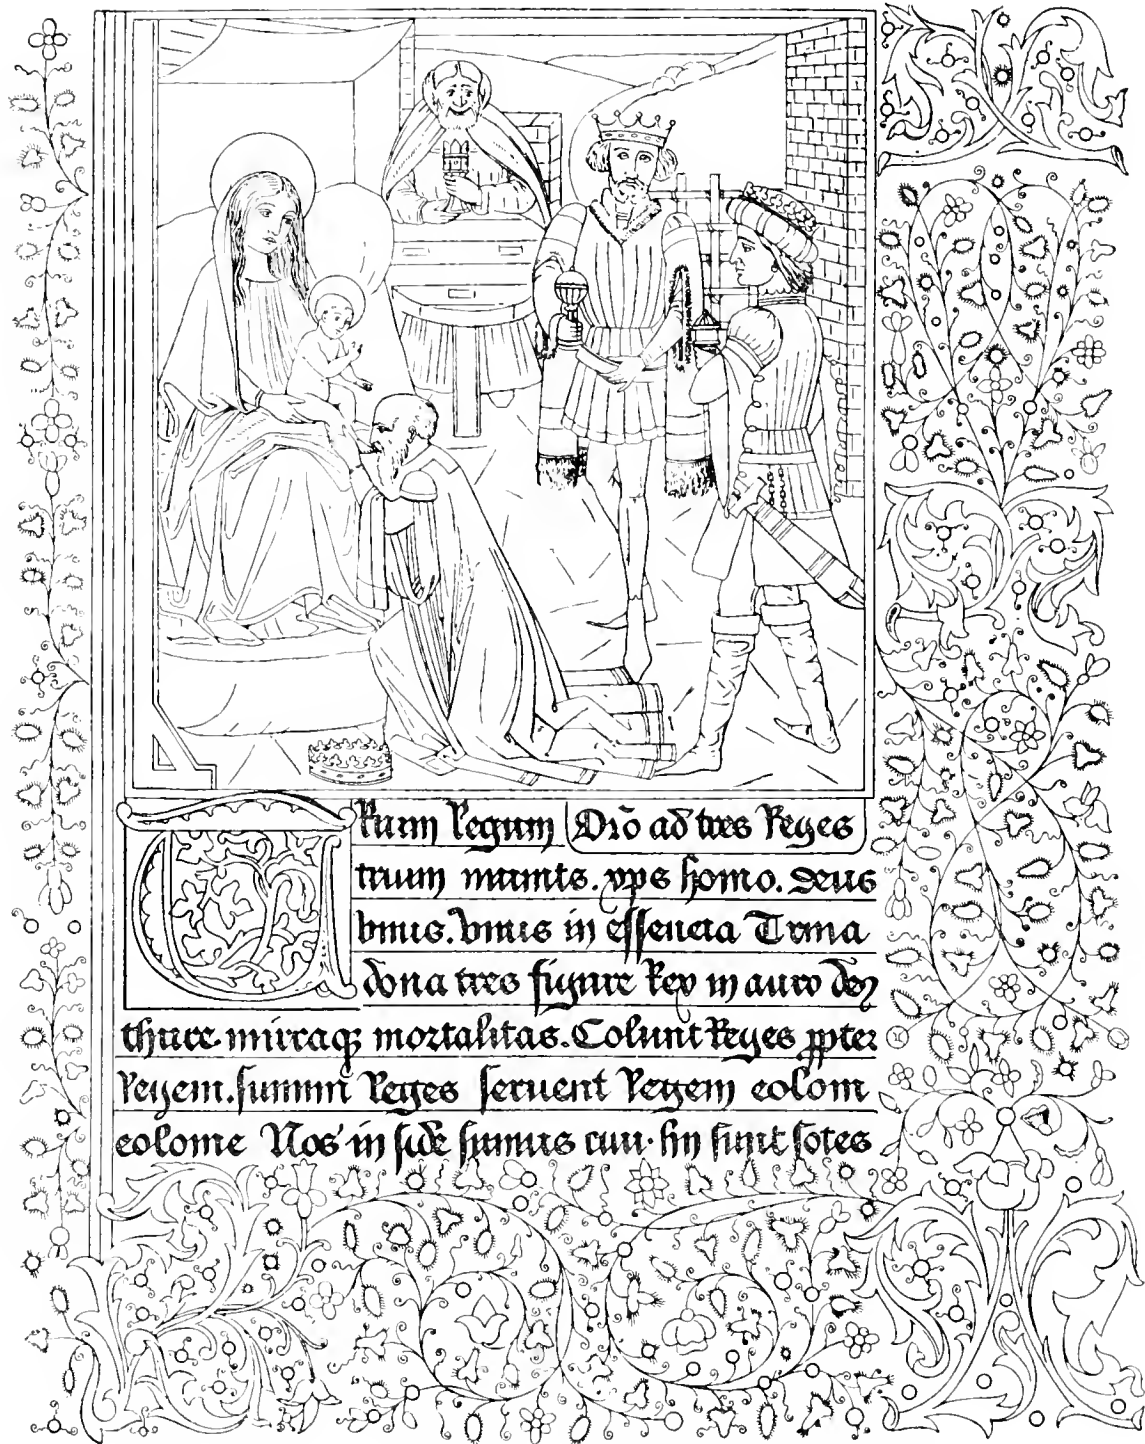 Trium Regum Orõ ad tres Reges
trium munus. xps homo. deus
vnus. vnus in essencia Trina
dona tres signire Rex in auro de9
thure. mirraq; mortalitas. Colunt Reges ppter
Regem. summi Reges seruent Regem colom
colome Nos in fide sumus sunt